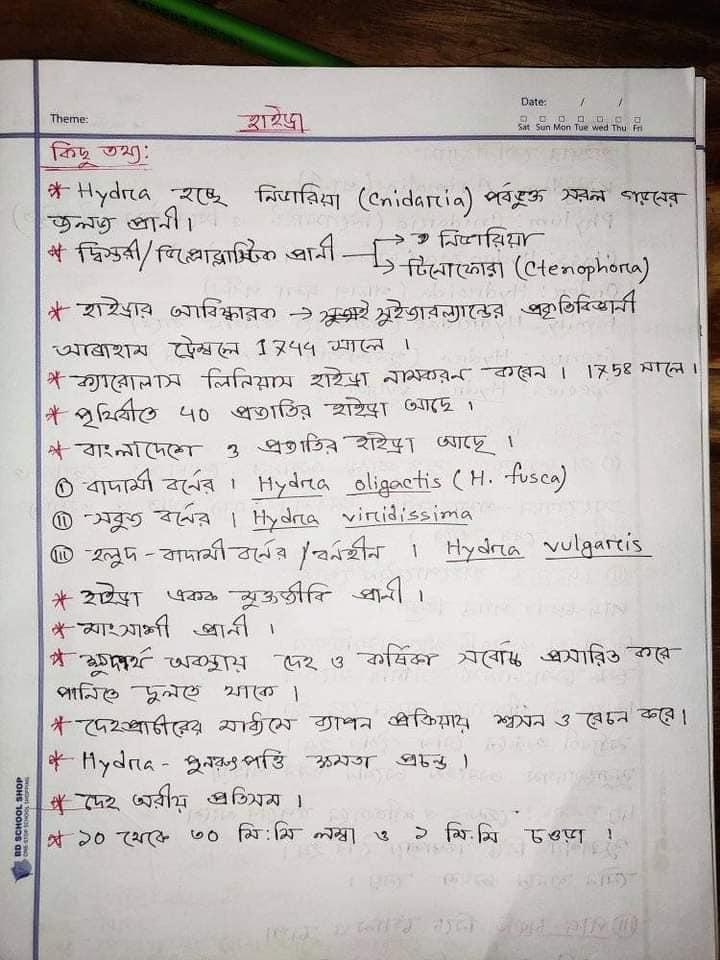 Date: / /
Theme:
হাইড্রা
Sat Sun Mon Tue wed Thu Fri
কিছু তথ্য:
* Hydra হচ্ছে নিডারিয়া (Cnidaria) পর্বভুক্ত সরল গঠনের
জলজ প্রাণী।
* দ্বিস্তরী/ডিপ্লোব্লাস্টিক প্রাণী → নিডারিয়া
→ টিনোফোরা (Ctenophora)
* হাইড্রার আবিষ্কারক → সুইজারল্যান্ডের প্রকৃতিবিজ্ঞানী
আব্রাহাম ট্রেম্বলে 1744 সালে ।
* ক্যারোলাস লিনিয়াস হাইড্রা নামকরন করেন । 1758 সালে ।
* পৃথিবীতে 40 প্রজাতির হাইড্রা আছে ।
* বাংলাদেশে ৩ প্রজাতির হাইড্রা আছে ।
i বাদামী বর্নের । Hydra oligactis (H. fusca)
ii সবুজ বর্নের । Hydra viridissima
iii হলুদ-বাদামী বর্নের/বর্নহীন । Hydra vulgaris
* হাইড্রা একক মুক্তজীবি প্রানী ।
* মাংসাশী প্রানী ।
* ক্ষুদার্থ অবস্থায় দেহ ও কর্ষিকা সর্বোচ্চ প্রসারিত করে
পানিতে দুলতে থাকে ।
* দেহপ্রাচীরের মাধ্যমে ব্যাপন প্রক্রিয়ায় শ্বসন ও রেচন করে।
* Hydra - পুনরুৎপত্তি ক্ষমতা প্রচন্ড ।
* দেহ অরীয় প্রতিসম ।
* ১০ থেকে ৩০ মি:মি লম্বা ও ১ মি.মি চওড়া ।
BD SCHOOL SHOP
ONE STOP SCHOOL SHOPPING